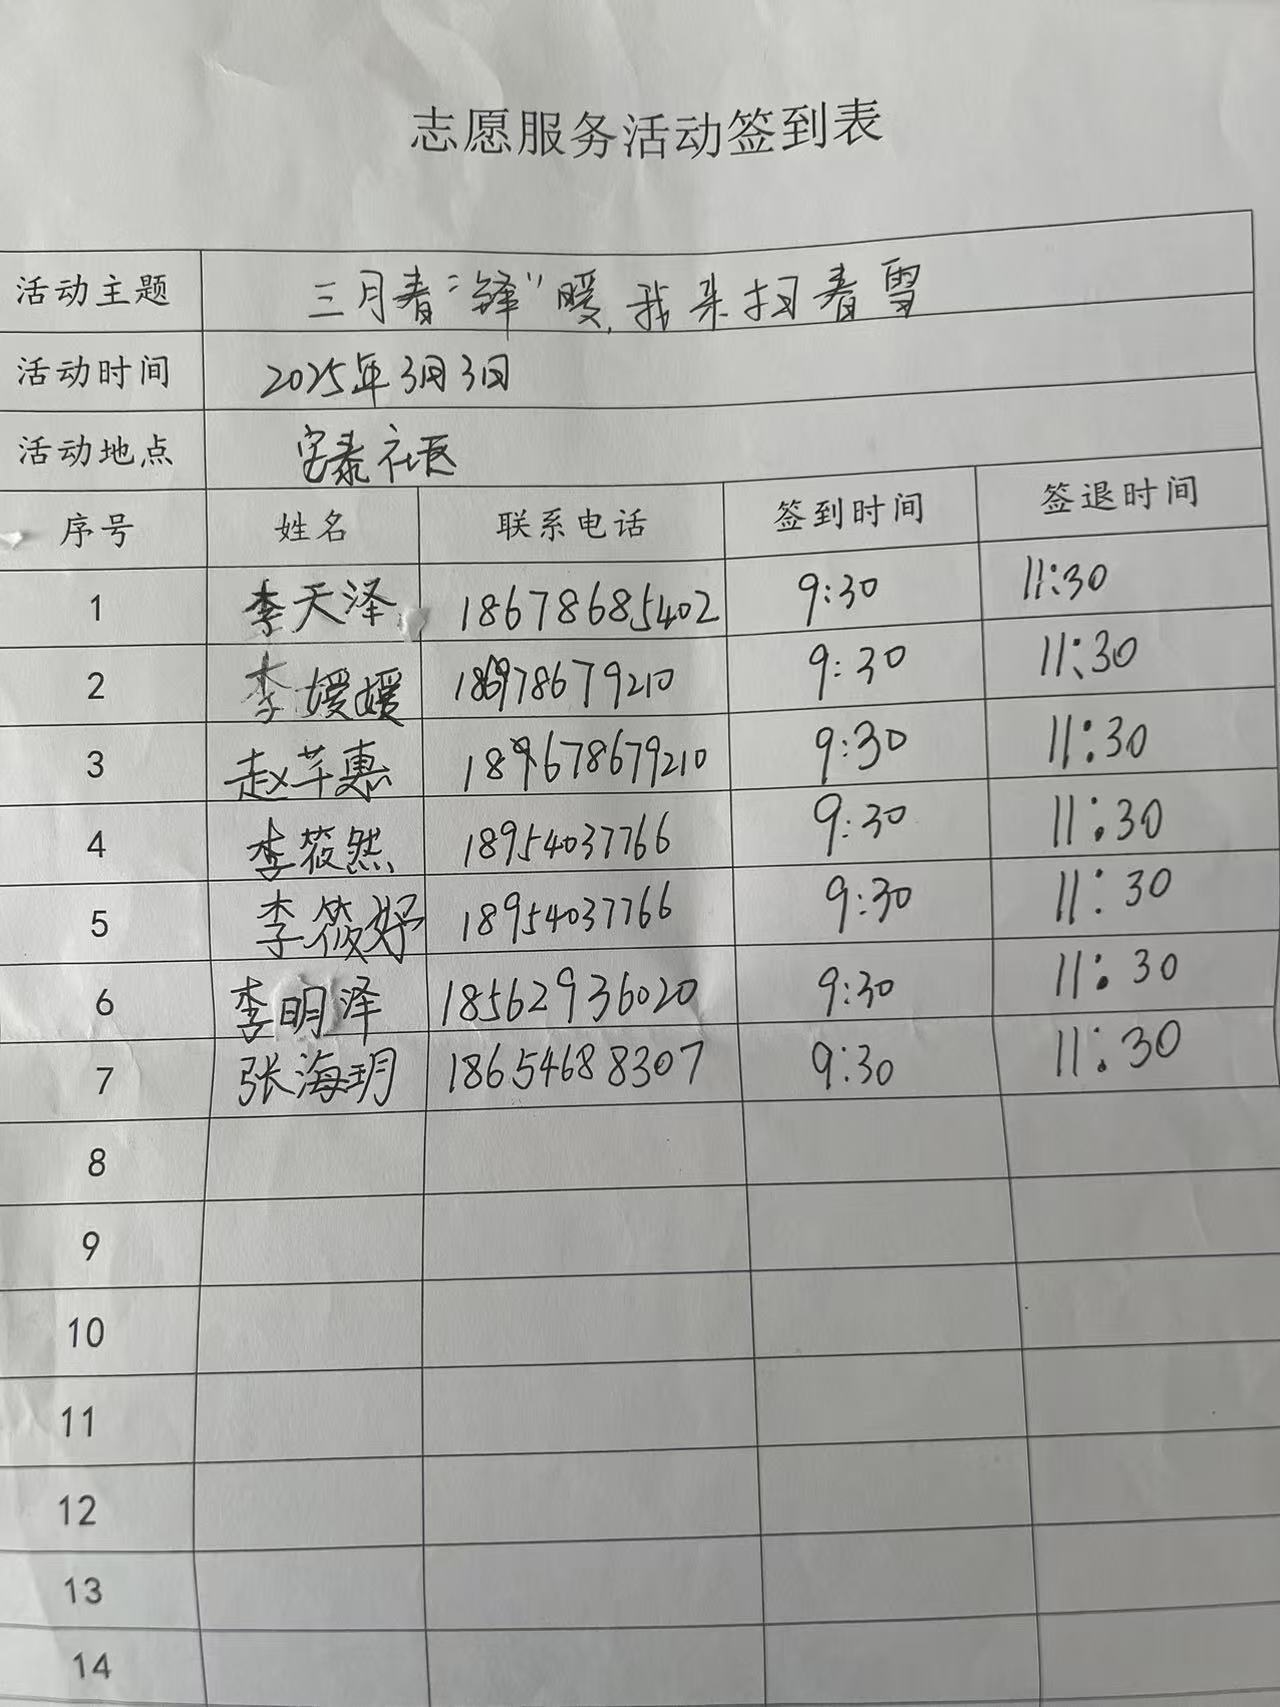 志愿服务活动签到表
活动主题 三月春“锋”暖,我来扫春雪
活动时间 2025年3月3日
活动地点 宏泰社区
序号 姓名 联系电话 签到时间 签退时间
1 李天泽 18678685402 9:30 11:30
2 李媛媛 9:30 11:30
3 赵芊惠 9:30 11:30
4 李筱然 18954037766 9:30 11:30
5 李筱妤 18954037766 9:30 11:30
6 李明泽 18562936020 9:30 11:30
7 张海玥 18654688307 9:30 11:30
8
9
10
11
12
13
14